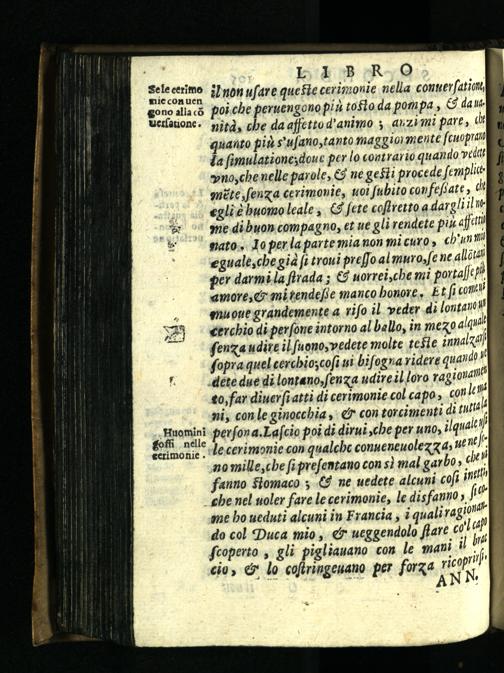 LIBRO
Se le cerimo
nie con uen
gono alla cō
uersatione.
il non usare queste cerimonie nella conuersatione,
poi che peruengono più tosto da pompa, & da ua-
nità, che da affetto d'animo ; anzi mi pare, che
quanto più s'usano, tanto maggiormente scuoprano
la simulatione; doue per lo contrario quando vedete
vno, che nelle parole, & ne gesti procede semplice-
mēte, senza cerimonie, uoi subito confeßate, che
egli è huomo leale, & sete costretto a dargli il no-
me di buon compagno, et ue gli rendete più affettio
nato. Io per la parte mia non mi curo, ch'un mio
eguale, che già si troui presso al muro, se ne allōtani
per darmi la strada ; & uorrei, che mi portasse più
amore, & mi rendeße manco honore. Et si come
muoue grandemente a riso il veder di lontano un
cerchio di persone intorno al ballo, in mezo al quale
senza udire il suono, vedete molte teste innalzarsi
sopra quel cerchio; cosi ui bisogna ridere quando ve
dete due di lontano, senza udire il loro ragionamen
to, far diuersi atti di cerimonie col capo, con le ma
ni, con le ginocchia, & con torcimenti di tutta la
Huomini
goffi nelle
cerimonie.
persona. Lascio poi di dirui, che per uno, il quale usi
le cerimonie con qualche conueneuolezza, ue ne so-
no mille, che si presentano con sì mal garbo, che ui
fanno stomaco ; & ne uedete alcuni così inetti,
che nel uoler fare le cerimonie, le disfanno, si co-
me ho ueduti alcuni in Francia, i quali ragionan-
do col Duca mio, & ueggendolo stare co'l capo
scoperto, gli pigliauano con le mani il brac
cio, & lo costringeuano per forza ricoprirsi.
ANN.